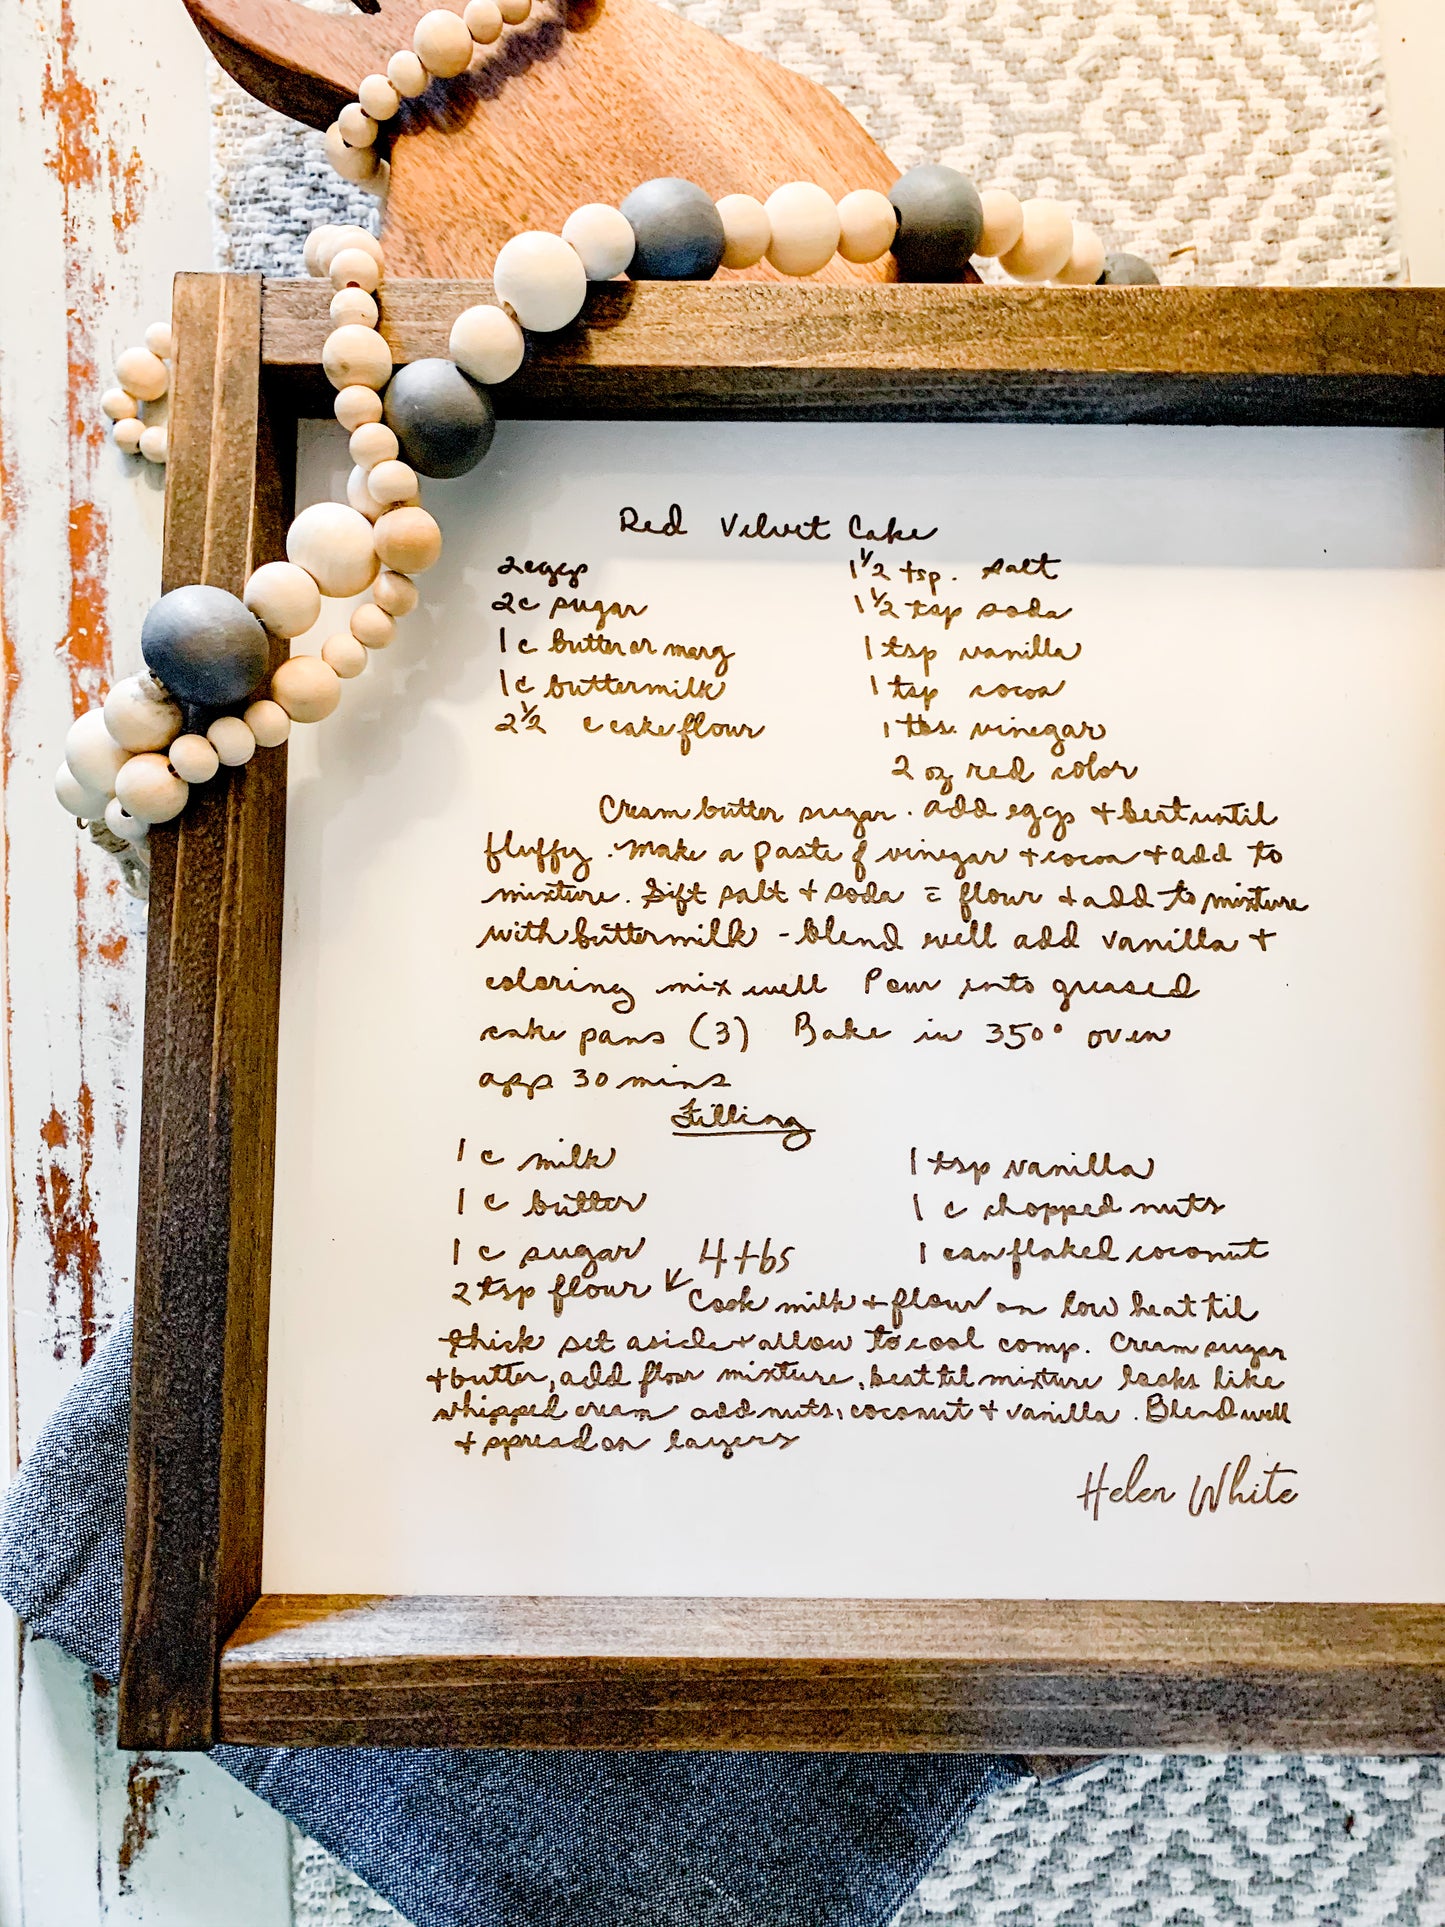 Red Velvet Cake
2 eggs 1 1/2 tsp. salt
2c sugar 1 1/2 tsp soda
1 c butter or marg 1 tsp vanilla
1c buttermilk 1 tsp cocoa
2 1/2 c cake flour 1 tbs. vinegar
2 oz red color
Cream butter sugar. add eggs + beat until
fluffy. Make a paste of vinegar + cocoa + add to
mixture. Sift salt + soda = flour + add to mixture
with buttermilk - blend well add vanilla +
coloring mix well Pour into greased
cake pans (3) Bake in 350° oven
app 30 mins
Filling
1 c milk 1 tsp vanilla
1 c butter 1 c chopped nuts
1 c sugar 4 tbs 1 can flaked coconut
2 tsp flour Cook milk + flour on low heat til
thick set aside + allow to cool comp. Cream sugar
+ butter, add flour mixture, beat til mixture looks like
whipped cream add nuts, coconut + vanilla. Blend well
+ spread on layers
Helen White